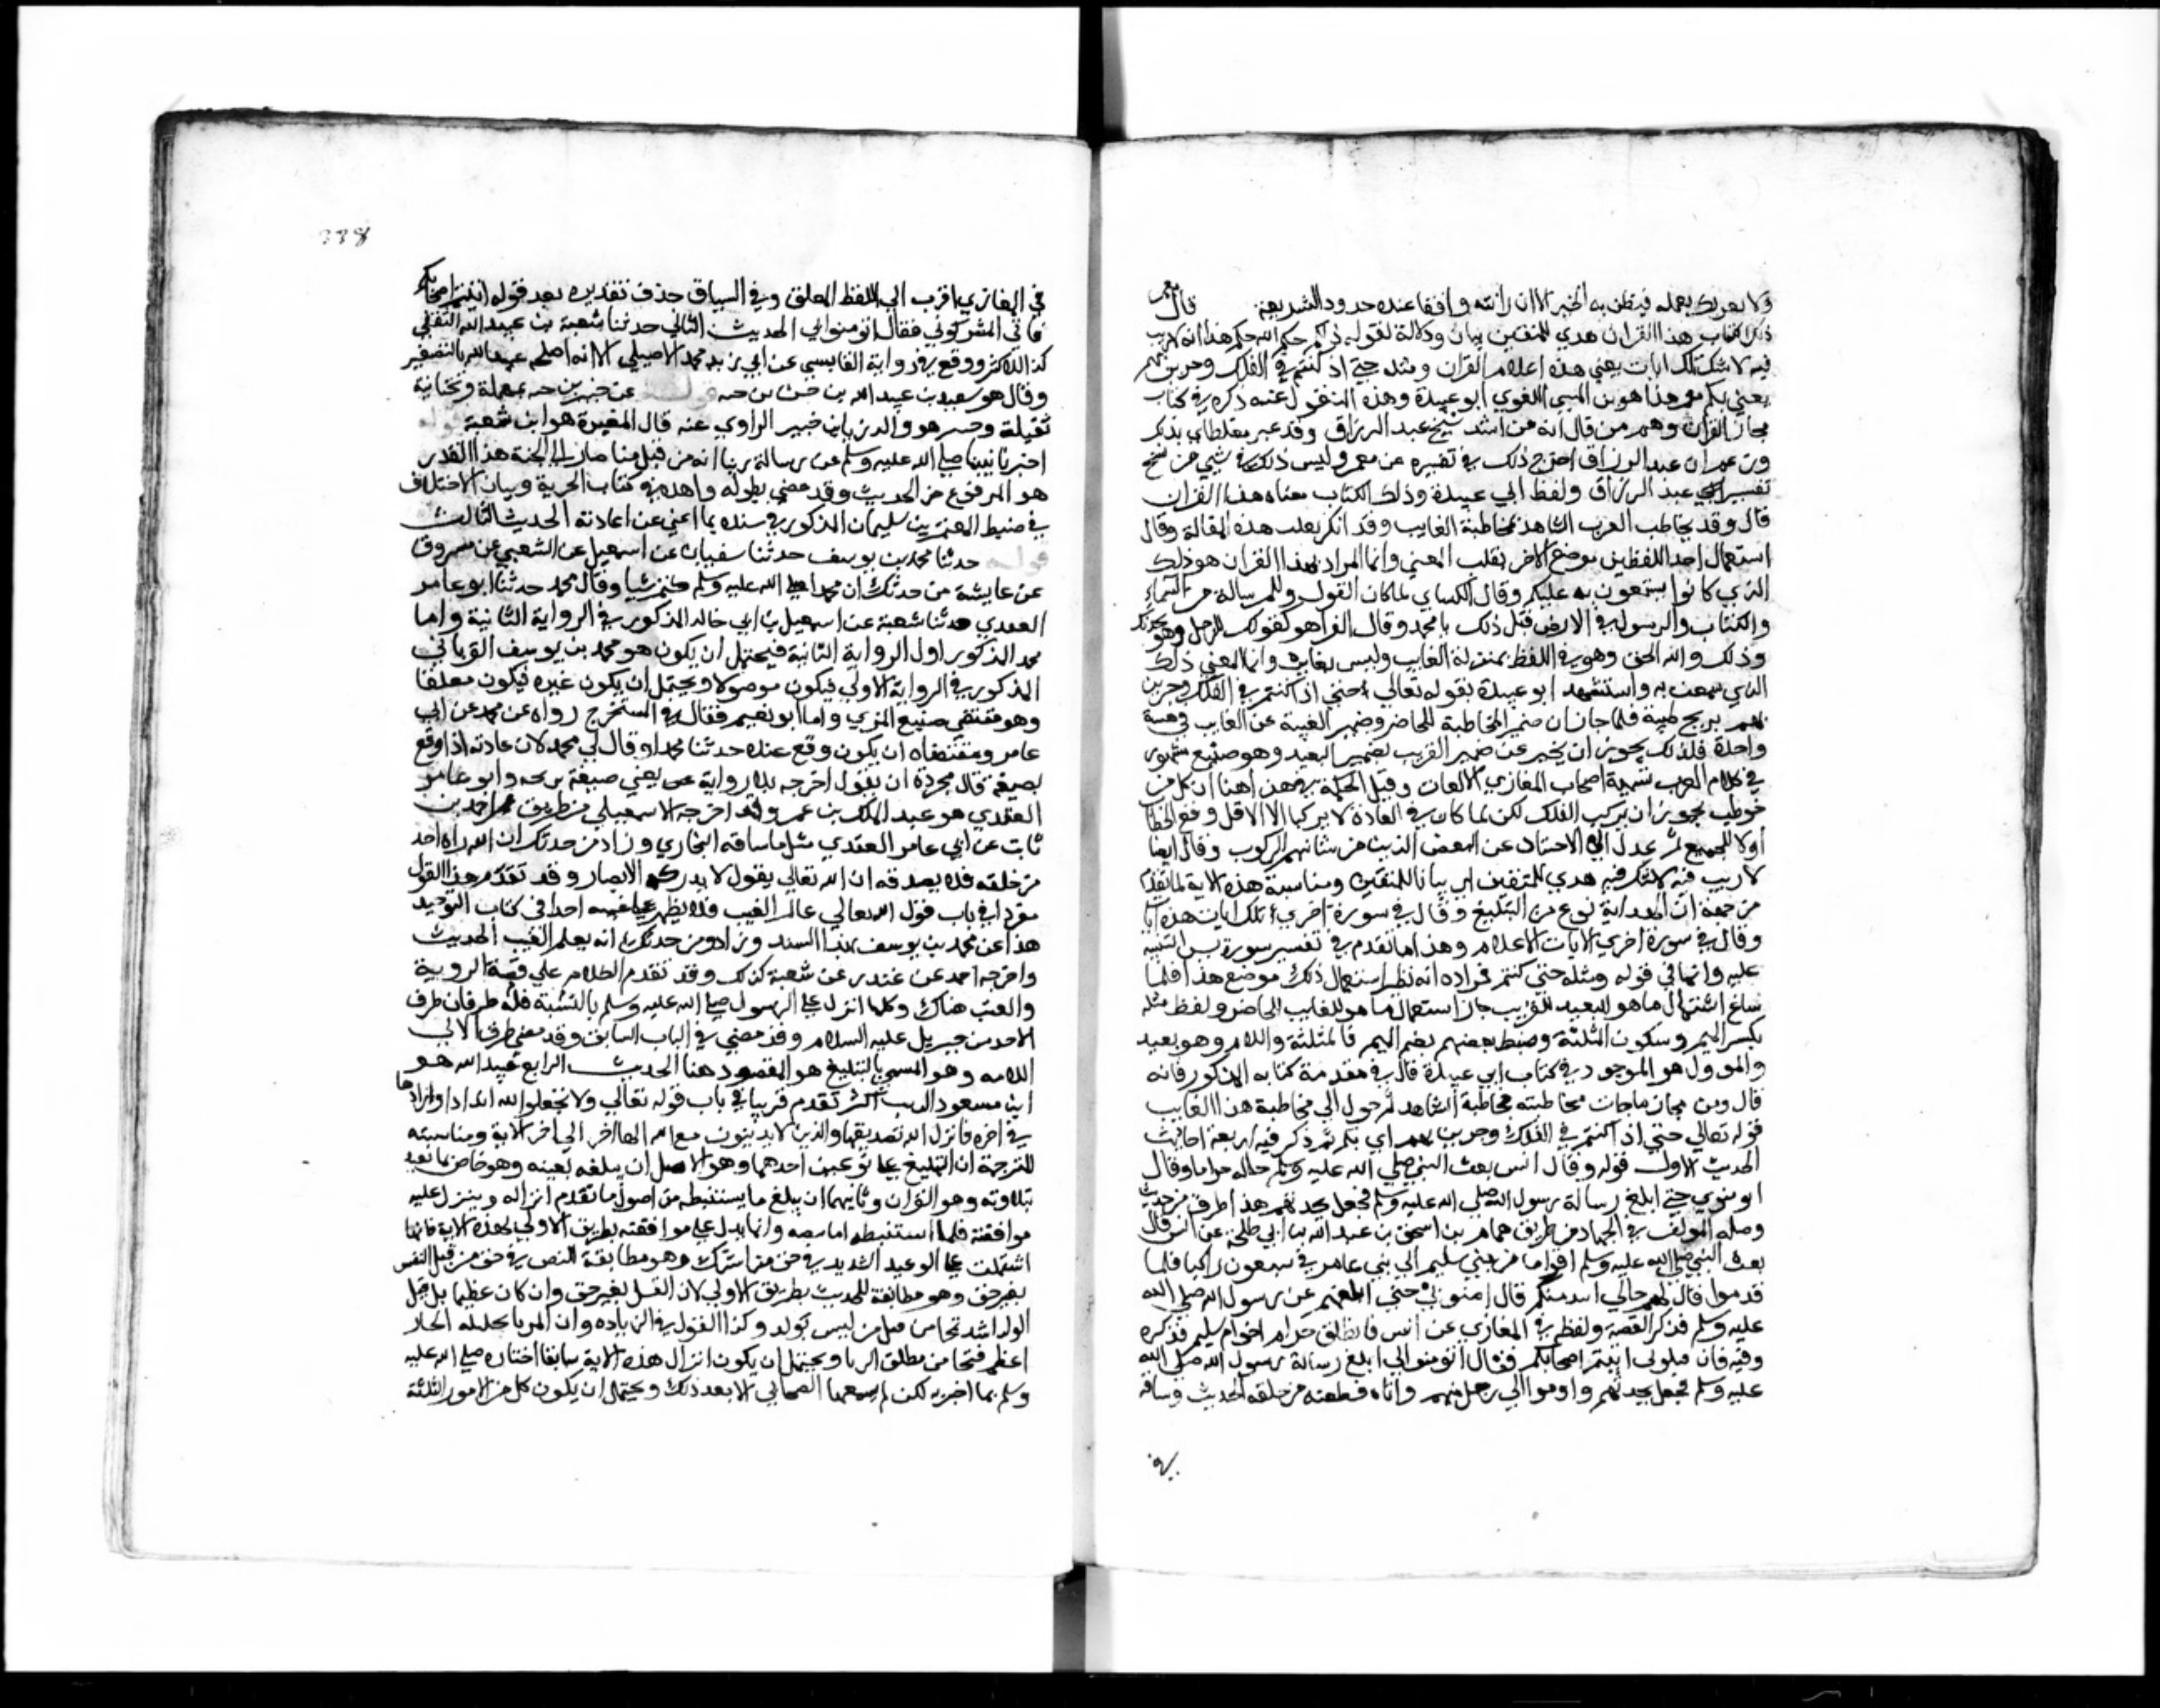 ولا يغرنك بعمله فيظن به الخير الا ان رايته واقفا عند حدود الشريعة قال معمر
ذلك الكتاب هذا القران هدي للمتقين بيان ودلالة لقوله ذلكم حكم الله حكم هذا انه لا ريب
فيه لا شك تلك ايات يعني هذه اعلام القران ومثله حتي اذا كنتم في الفلك وجرين بهم
يعني بكم معمر هذا هو بن المثني اللغوي ابو عبيدة وهذا المنقول عنه ذكره في كتاب
مجاز القران ووهم من قال انه بن راشد شيخ عبد الرزاق وقد عبر مغلطاي بذكر
وزعم ان عبد الرزاق اخرج ذلك في تفسيره عن معمر وليس ذلك في شيي من نسخ
تفسير عبد الرزاق ولفظ ابي عبيدة وذلك الكتاب معناه هذا القران
قال وقد يخاطب العرب الشاهد بمخاطبة الغايب وقد انكر ثعلب هذه المقالة وقال
استعمال احد اللفظين موضع الاخر يقلب المعني وانما المراد بهذا القران هو ذلك
الذي كانوا يستفتحون به عليكم وقال الكسائي لما كان القول والرسالة من السماء
والكتاب والرسول في الارض قيل ذلك يا محمد وقال الفرا هو كقولك للرجل وهو يحدثك
وذلك والله الحق وهو في اللفظ بمنزلة الغايب وليس بغايب وانما المعني ذلك
الذي سمعت به واستشهد ابو عبيدة بقوله تعالي حتي اذا كنتم في الفلك وجرين
بهم بريح طيبة فلما جاز ان ضمير المخاطبة للحاضر وضمير الغيبة عن الغايب في قصة
واحدة فلذلك يجوز ان يخبر عن ضمير القريب بضمير البعيد وهو صنيع مشهور
في كلام العرب تسميه اصحاب المعاني الالتفات وقيل الحكمة في هذا هنا ان كل من
خوطب يجوز ان يركب الفلك لكن لما كان في العادة لا يركبها الا الاقل وقع الخطاب
اولا للجميع ثم عدل الي الاخبار عن البعض الذين من شانهم الركوب وقال ايضا
لا ريب فيه لا شك فيه هدي للمتقين اي بيانا للمتقين ومناسبة هذه الاية لما تقدم
من جهة ان الهداية نوع من التبليغ وقال في سورة اخري تلك ايات هذه ايات
وقال في سورة اخري الايات الاعلام وهذا ما تقدم في تفسير سورة يونس التنبيه
عليه وانما في قوله ومثله حتي كنتم فمراده انه نظير استعمال ذلك موضع هذا فلما
ساغ استعمال ما هو للبعيد للقريب جاز استعمال ما هو للغايب للحاضر ولفظ مثله
بكسر الميم وسكون المثلثة وضبط بعضهم بضم الميم فالمثلثة واللام وهو بعيد
والموول هو الموجود في كتاب ابي عبيدة قال في مقدمة كتابه المذكور فانه
قال ومن مجاز ما جات مخاطبته مخاطبة الشاهد ثم حول الي مخاطبة هذا الغايب
قوله تعالي حتي اذا كنتم في الفلك وجرين بهم اي بكم ثم ذكر فيه اربعة احاديث
الحديث الاول قوله وقال انس بعث النبي صلي الله عليه وسلم خاله حراما وقال
اتومنوني حتي ابلغ رسالة رسول الله صلي الله عليه وسلم فجعل يحدثهم هذا طرف من حديث
وصله المولف في الجهاد من طريق همام بن اسحق بن عبد الله بن ابي طلحة عن انس قال
بعث النبي صلي الله عليه وسلم اقواما من بني سليم الي بني عامر في سبعون راكبا فلما
قدموا قال لهم خالي اتقدمكم قال امنوني حتي ابلغهم عن رسول الله صلي الله
عليه وسلم فذكر القصة ولفظه في المغازي عن انس فانطلق حرام اخو ام سليم فذكره
وفيه فان قتلوني اتيتم اصحابكم فقال اتومنوني ابلغ رسالة رسول الله صلي الله
عليه وسلم فجعل يحدثهم واوموا الي رجل منهم واتاه فطعنه من خلفه الحديث وسياقه
في
في المغازي اقرب الي اللفظ المعلق وفي السياق حذف تقديره بعد قوله اتيتم اصحابكم
فاتي المشركون فقال اتومنوني الحديث الثاني حدثنا سعيد بن عبيد الله الثقفي
كذا للاكثر ووقع في رواية القابسي عن ابي زيد محمد الاصيلي الا انه اصلحه عبد الله بالتصغير
وقال هو سعيد بن عبيد الله بن جبير بن حيه عن جبير بن حيه بمهملة وتحتانية
ثقيلة وجبير هو والد زياد بن جبير الراوي عنه قال المغيرة هو ابن شعبة
اخبرنا نبينا صلي الله عليه وسلم عن رسالة ربنا انه من قتل منا صار الي الجنة هذا القدر
هو المرفوع من الحديث وقد مضي بطوله وشواهده في كتاب الجزية وبيان الاختلاف
في ضبط المعتمر بن سليمان المذكور في سنده بما اغني عن اعادته الحديث الثالث
حدثنا محمد بن يوسف حدثنا سفيان عن اسمعيل عن الشعبي عن مسروق
عن عايشة من حدثك ان محمدا صلي الله عليه وسلم كتم شيا وقال محمد حدثنا ابو عامر
العقدي حدثنا شعبة عن اسمعيل بن ابي خالد المذكور في الرواية الثانية واما
محمد المذكور اول الرواية الثانية فيحتمل ان يكون هو محمد بن يوسف الفريابي
المذكور في الرواية الاولي فيكون موصولا ويحتمل ان يكون غيره فيكون معلقا
وهو مقتضي صنيع المزي واما ابو نعيم فقال في المستخرج رواه عن محمد عن ابي
عامر ومقتضاه ان يكون وقع عنده حدثنا محمد او قال لي محمد لان عادته اذا وقع
بصيغة قال مجردة ان يقول اخرجه بلا رواية يعني صيغة صريحه وابو عامر
العقدي هو عبد الملك بن عمرو وقد اخرجه الاسمعيلي من طريق احمد بن
ثابت عن ابي عامر العقدي مثل ما ساقه البخاري وزاد من حدثك ان الله راه احد
من خلقه فلا يصدقه ان الله تعالي يقول لا يدركه الابصار وقد تقدم هذا القول
مفردا في باب قول الله تعالي عالم الغيب فلا يظهر علي غيبه احدا في كتاب التوحيد
هذا عن محمد بن يوسف بهذا السند وزاد ومن حدثك انه يعلم الغيب الحديث
واخرجه احمد عن غندر عن شعبة كذلك وقد تقدم الكلام علي قصة الروية
والغيب هناك وكلما انزل علي الرسول صلي الله عليه وسلم بالنسبة فله طرفان طرف
الاخذ من جبريل عليه السلام وقد مضي في الباب السابق وقد مضي طرف الادا الي
الامه وهو المسمي بالتبليغ هو المقصود هنا الحديث الرابع عبد الله هو
ابن مسعود الحديث اكثر تقدم قريبا في باب قوله تعالي ولا تجعلوا لله اندادا وزادها
في اخره فانزل الله تصديقها والذين لا يدعون مع الله الها اخر الي اخر الاية ومناسبته
للترجمة ان التبليغ علي نوعين احدهما وهو الاصل ان يبلغه بعينه وهو خاص بما تعبد
بتلاوته وهو القران وثانيهما ان يبلغ ما يستنبط من اصول ما تقدم انزاله وينزل عليه
موافقته فلما استنبطه اما بنصه واما بدل علي موافقته بطريق الاولي لهذه الاية فانها
اشتملت علي الوعيد الشديد في حق من اشرك وهو مطابقة للنص في حق من قتل النفس
بغير حق وهو مطابقة للحديث بطريق الاولي لان القتل بغير حق وان كان عظيما بل قتل
الولد اشد قبحا من قتل من ليس بولد وكذا القول في الزنا وان الزنا بحليلة الجار
اعظم قبحا من مطلق الزنا ويحتمل ان يكون انزال هذه الاية سابقا اختاره صلي الله عليه
وسلم بما اخبر به لكن لم يسمعها الصحابي الا بعد ذلك ويحتمل ان يكون كل من الامور الثلثة